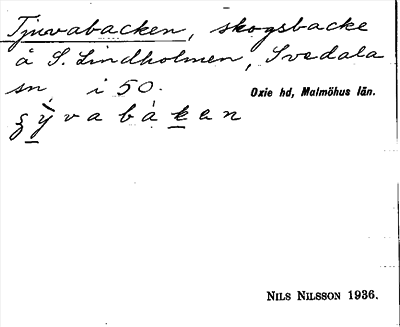 Tjuvabacken, skogsbacke
å S. Lindholmen, Svedala
sn, i 50.
Oxie hd, Malmöhus län.
NILS NILSSON 1936.